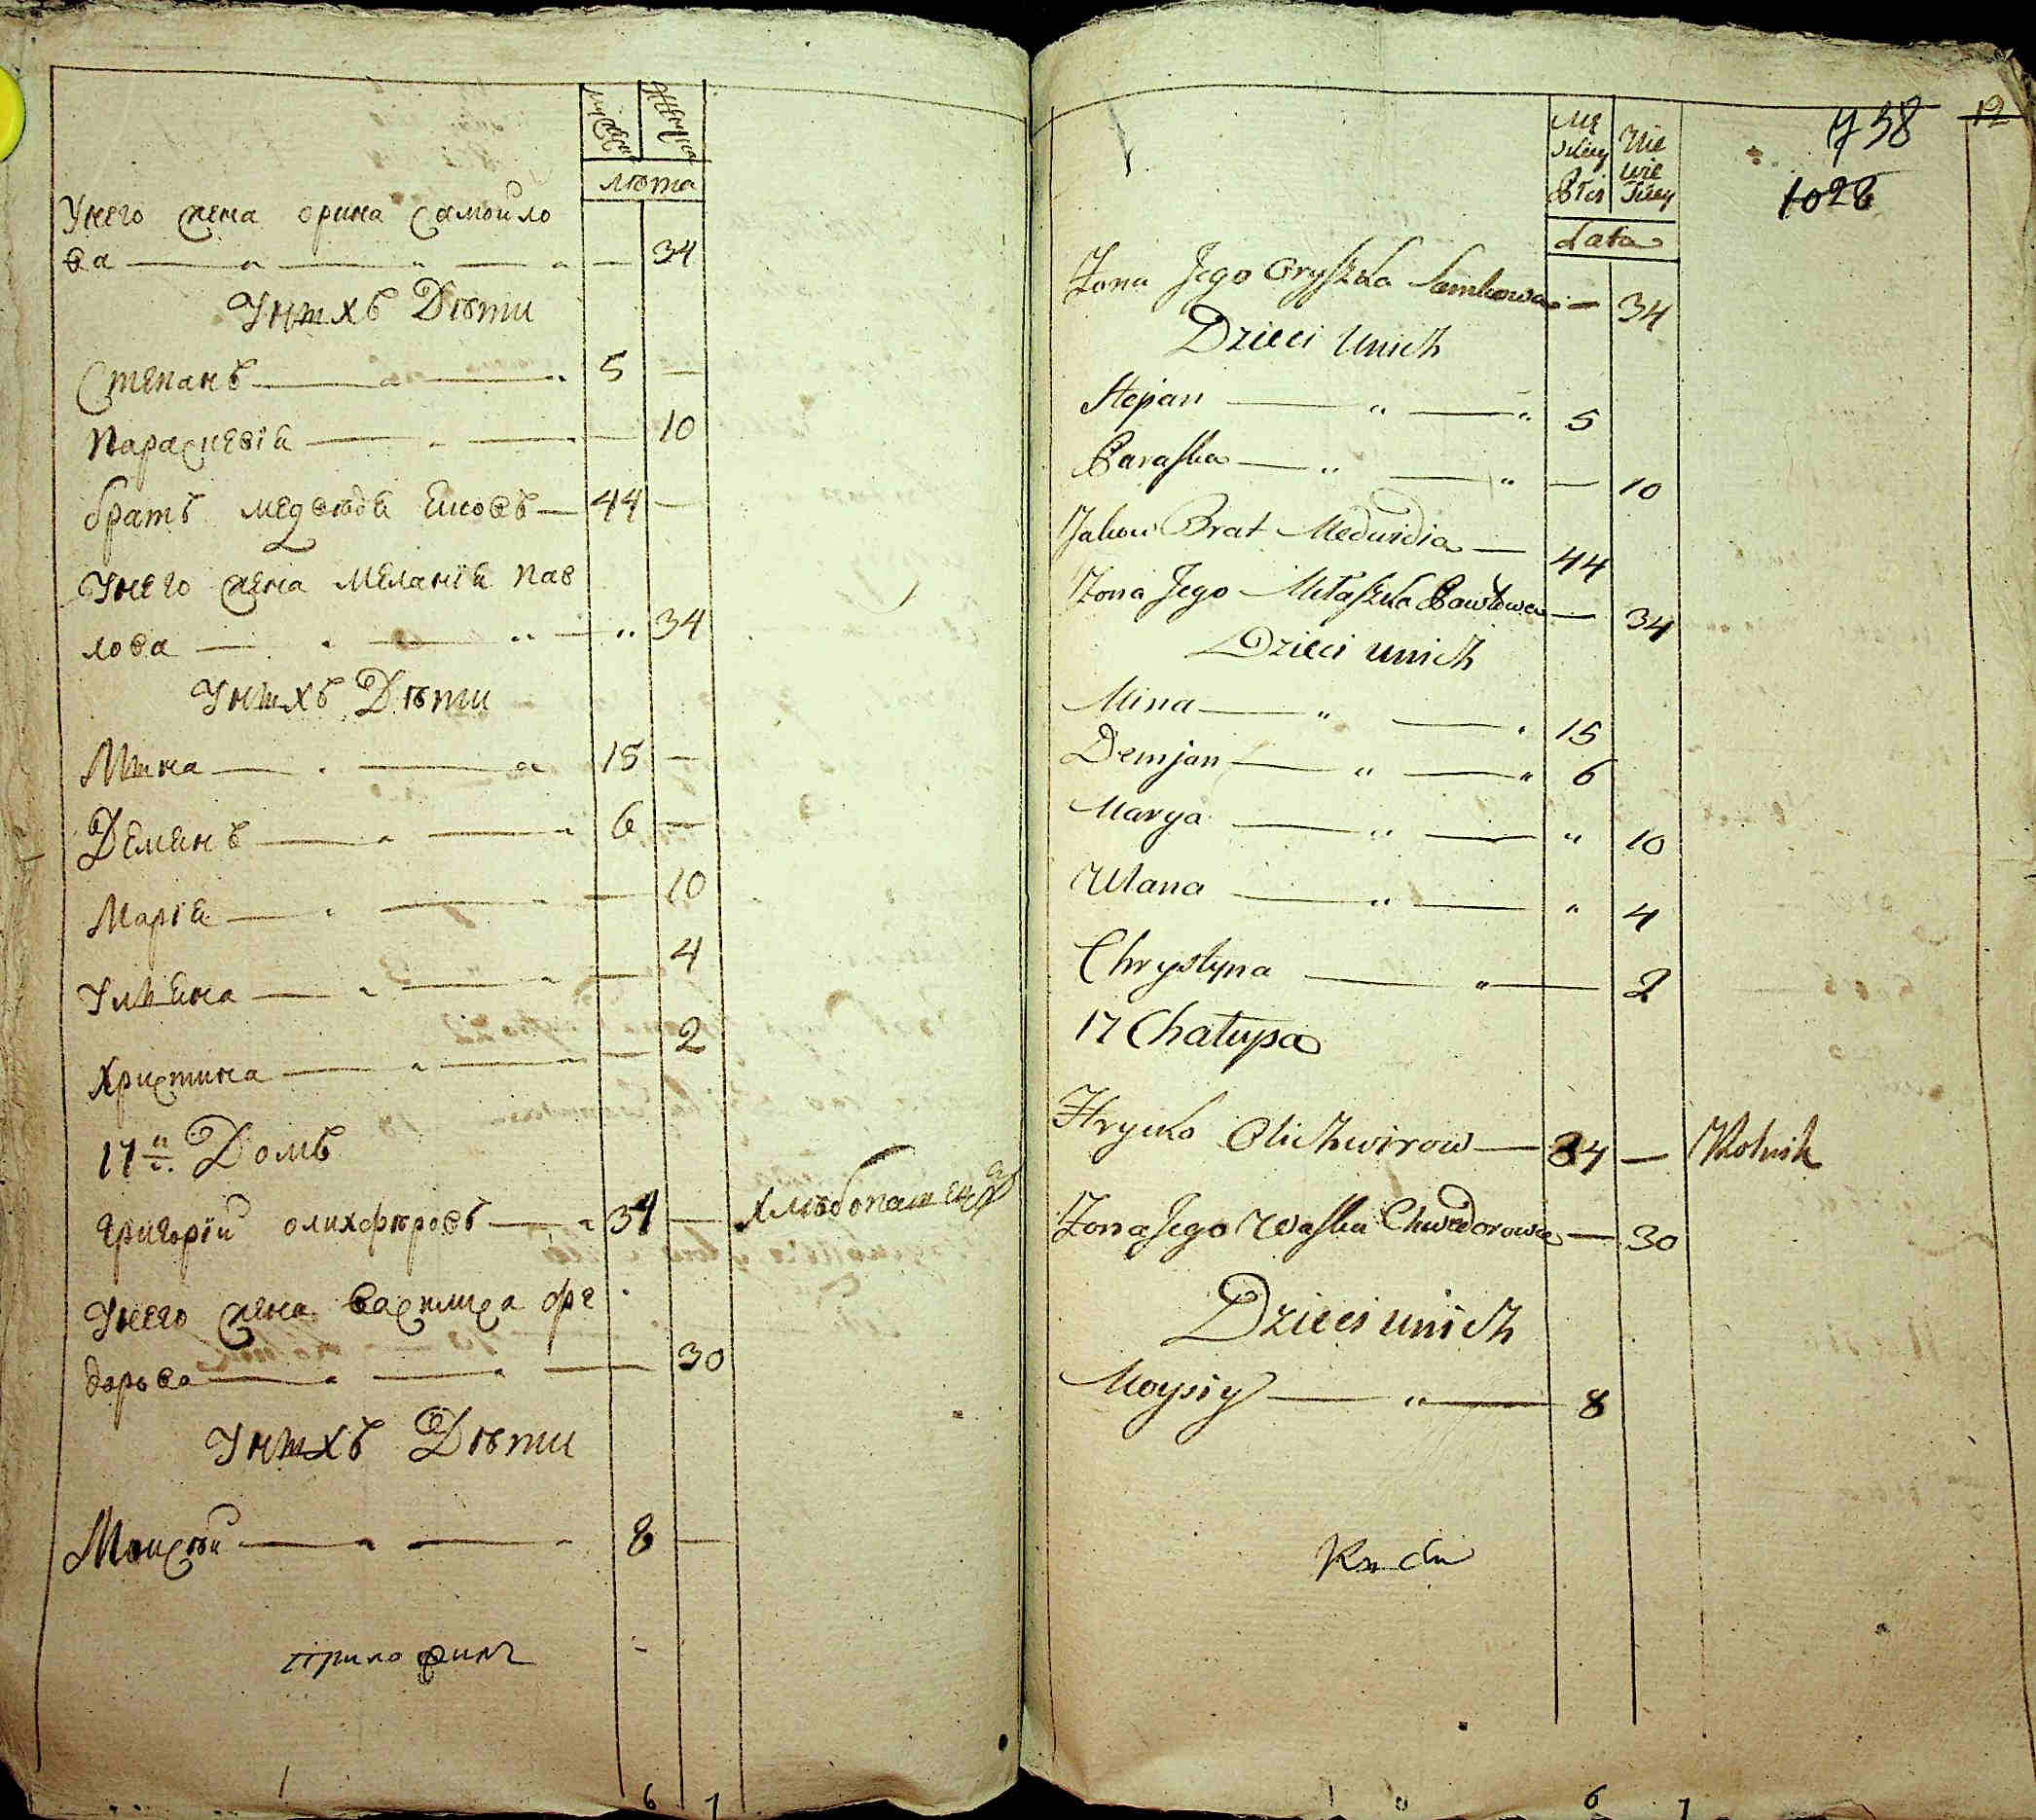 мужеск женска
лѣта
У него жена орина Самойло
ва — 34
У нихъ Дѣти
Степанъ — 5 —
Параскевія — 10
братъ медведя Яковъ — 44 —
У него жена Меланія Пав
лова — 34
У нихъ Дѣти
Мина — 15 —
Демянъ — 6 —
Марія — 10
Ульяна — 4
Христина — 2
17й Домъ
Григорій олихфѣровъ — 34 — Хлѣбопашецъ
У него жена Василиса фе
дорова — 30
У нихъ Дѣти
Моисѣй — 8 —
6 7
738 12
1028
Mę skiey Płci Nie wie sciey
Lata
Żona Jego Oryszka Samkowa — 34
Dzieci u nich
Stepan — 5
Paraska — 10
Jakow Brat Medwidia — 44
Żona Jego Miłaszka Pawłowa — 34
Dzieci u nich
Mina — 15
Demjan — 6
Marya — 10
Ulana — 4
Chrystyna — 2
17 Chałupa
Hrycko Olichwirow — 34 — Rolnik
Żona Jego Waska Chwedorowa — 30
Dzieci u nich
Moysiy — 8
6 7